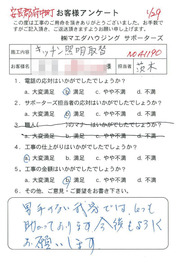 安芸郡府中町 お客様アンケート 1/29
この度は工事のご用命を頂きありがとうございました。お手数で
すがご記入頂き、ご返送頂きますようお願い申し上げます。
㈱マエダハウジング サポーターズ
施工内容 キッチン照明取替 NO.A1190
お名前 様 担当者 茨木
1. 電話の応対はいかがでしたでしょうか?
a. 大変満足 b. 満足 c. やや不満 d. 不満
2. サポーターズ担当者の応対はいかがでしたでしょうか?
a. 大変満足 b. 満足 c. やや不満 d. 不満
3. 職人
a. 大変満足 b. 満足 c. やや不満 d. 不満
4. 工事の仕上がりはいかがでしたでしょうか?
a. 大変満足 b. 満足 c. やや不満 d. 不満
5. 工事金額はいかがでしたでしょうか?
a. 大変満足 b. 満足 c. やや不満 d. 不満
6. その他、ご意見・ご要望をお書き下さい。
男手のない我家では、とっても
助かっております 今後も よろしく
お願いします